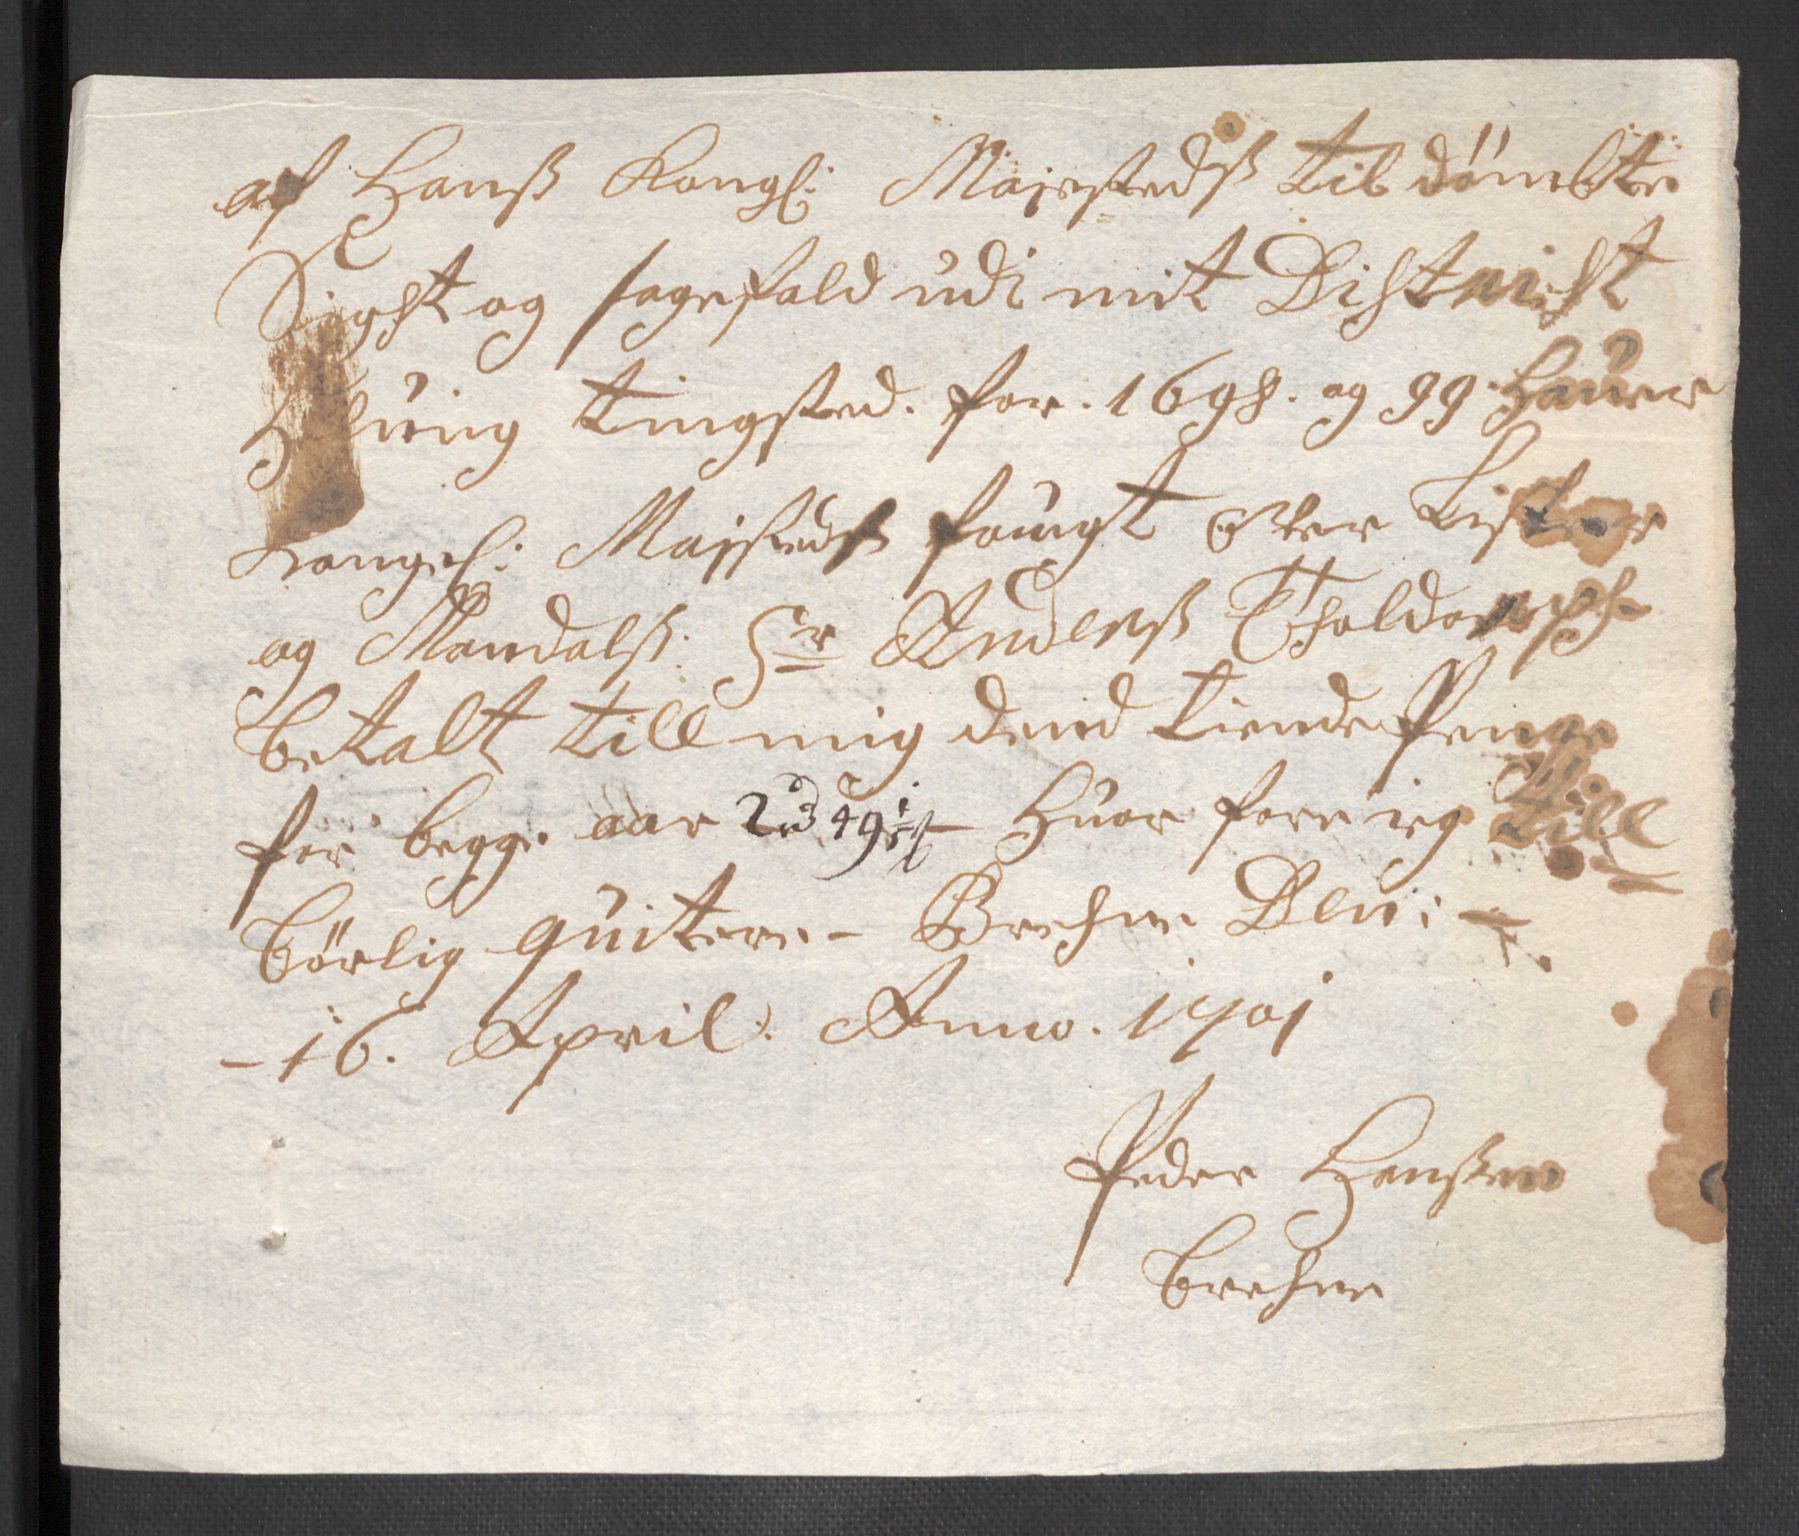 af Hanß Kongl: Majestedß til dömbte
Sight og sagefald udi mit District
tingsted. for. 1698. og 99. Hauer
Kongel: Majstedß fougt ofver Lister
og Mandalß. Sr Anderß Tholdorph
betalt till mig dend tiende Penge
for begge aar 2 rd 49 Huor fore ieg till
börlig quitere - Brehne Den: -
- 16. April. Anno. 1701
Peder Hanßen
Brehne